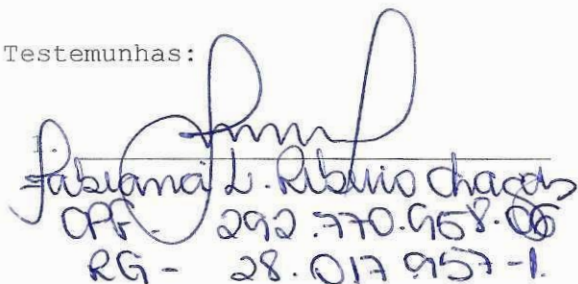 Testemunhas:
Fabiana L. Ribeiro Chagas
CPF - 292.770.958-06
RG - 28.017.957-1.